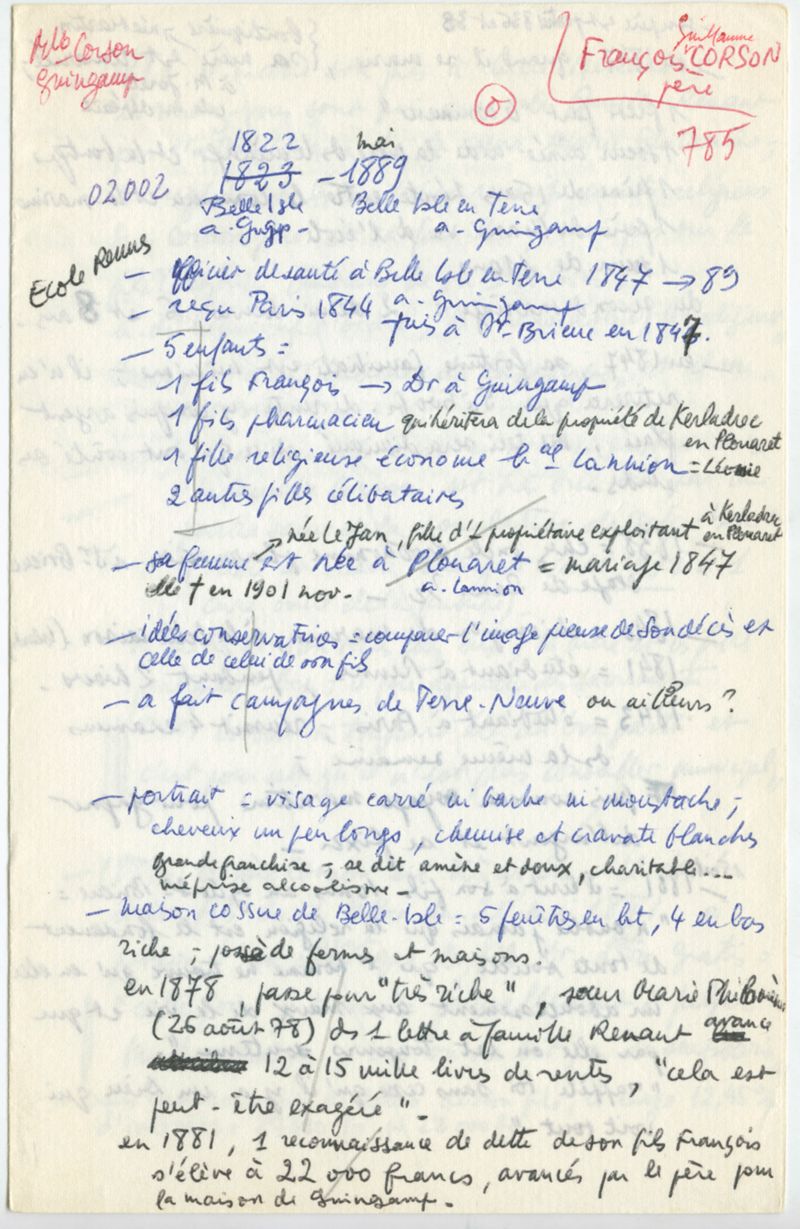 Mlb Corson
Guingamp
Guillaume
François CORSON
père
0
785
1822 mai
1823 - 1889
02002
Belle Isle Belle Isle en Terre
a. Ggp - a - Guingamp
Ecole Rennes
- officier de santé à Belle Isle en Terre 1847 → 89
- reçu Paris 1844 a - Guingamp
puis à St-Brieuc en 1847.
- 5 enfants =
1 fils François → Dr à Guingamp
1 fils pharmacien qui héritera de la propriété de Kerladrec
en Plouaret
1 fille religieuse économe hal Lannion = Léonie
2 autres filles célibataires
→ née Le Jan, fille d'1 propriétaire exploitant à Kerladrec
en Plouaret
- sa femme est née à Plouaret = mariage 1847
elle † en 1901 nov. - a. Lannion
- idées conservatrices = comparer l'image pieuse de son décès et
celle de celui de son fils
- a fait campagnes de Terre-Neuve ou ailleurs ?
- portrait = visage carré ni barbe ni moustache ;
cheveux un peu longs chemise et cravate blanches
grande franchise ; se dit amène et doux, charitable...
méprise alcoolisme -
- maison cossue de Belle-Isle = 5 fenêtres en ht, 4 en bas
riche ; possède fermes et maisons.
en 1878, passe pour "très riche", soeur Marie Philomène
(26 août 78) ds 1 lettre à famille Renant avance
12 à 15 mille livres de rentes, "cela est
peut-être exagéré" -
en 1881, 1 reconnaissance de dette de son fils François
s'élève à 22 000 francs, avancés par le père pour
la maison de Guingamp. -